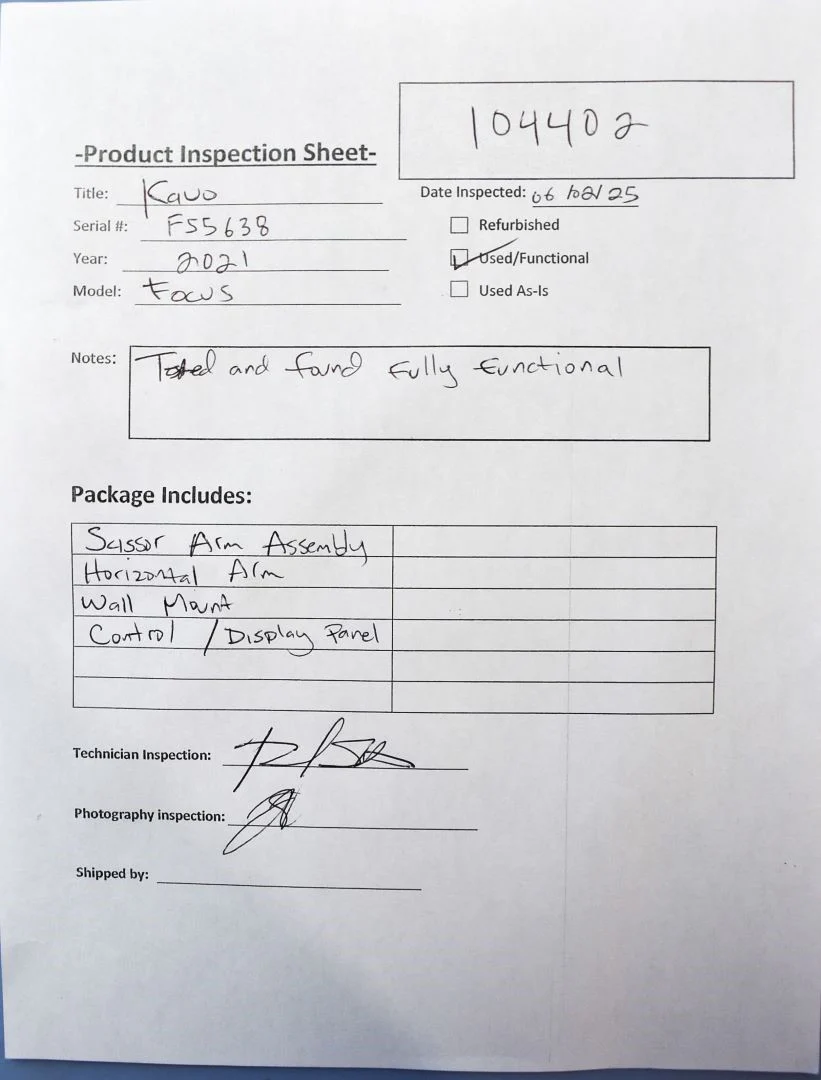 104402
-Product Inspection Sheet-
Title: Kavo
Date Inspected: 06/02/25
Serial #: FS5638
Refurbished
Year: 2021
Used/Functional
Model: Focus
Used As-Is
Notes: Tested and found fully functional
Package Includes:
Scissor Arm Assembly
Horizontal Arm
Wall Mount
Control / Display Panel
Technician Inspection:
Photography inspection:
Shipped by: